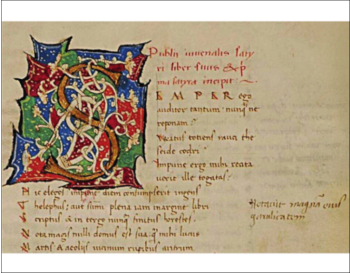 Publii iuuenalis saty
ri liber
ma satyra incipit
S EMPER ego
auditor tantum: nunq̃ ne
reponam?
Vexatus totiens rauci the
seide codri?
Impune ergo mihi recita
uerit ille togatas?
Hic elegos? impune diem consumpserit ingens
Telephus? aut summi plena iam margine libri
Scriptus & in tergo nondum finitus horestes?
Nota magis nulli domus est sua q̃ mihi lucus
Martis & aeoliis uicinum rupibus antrum